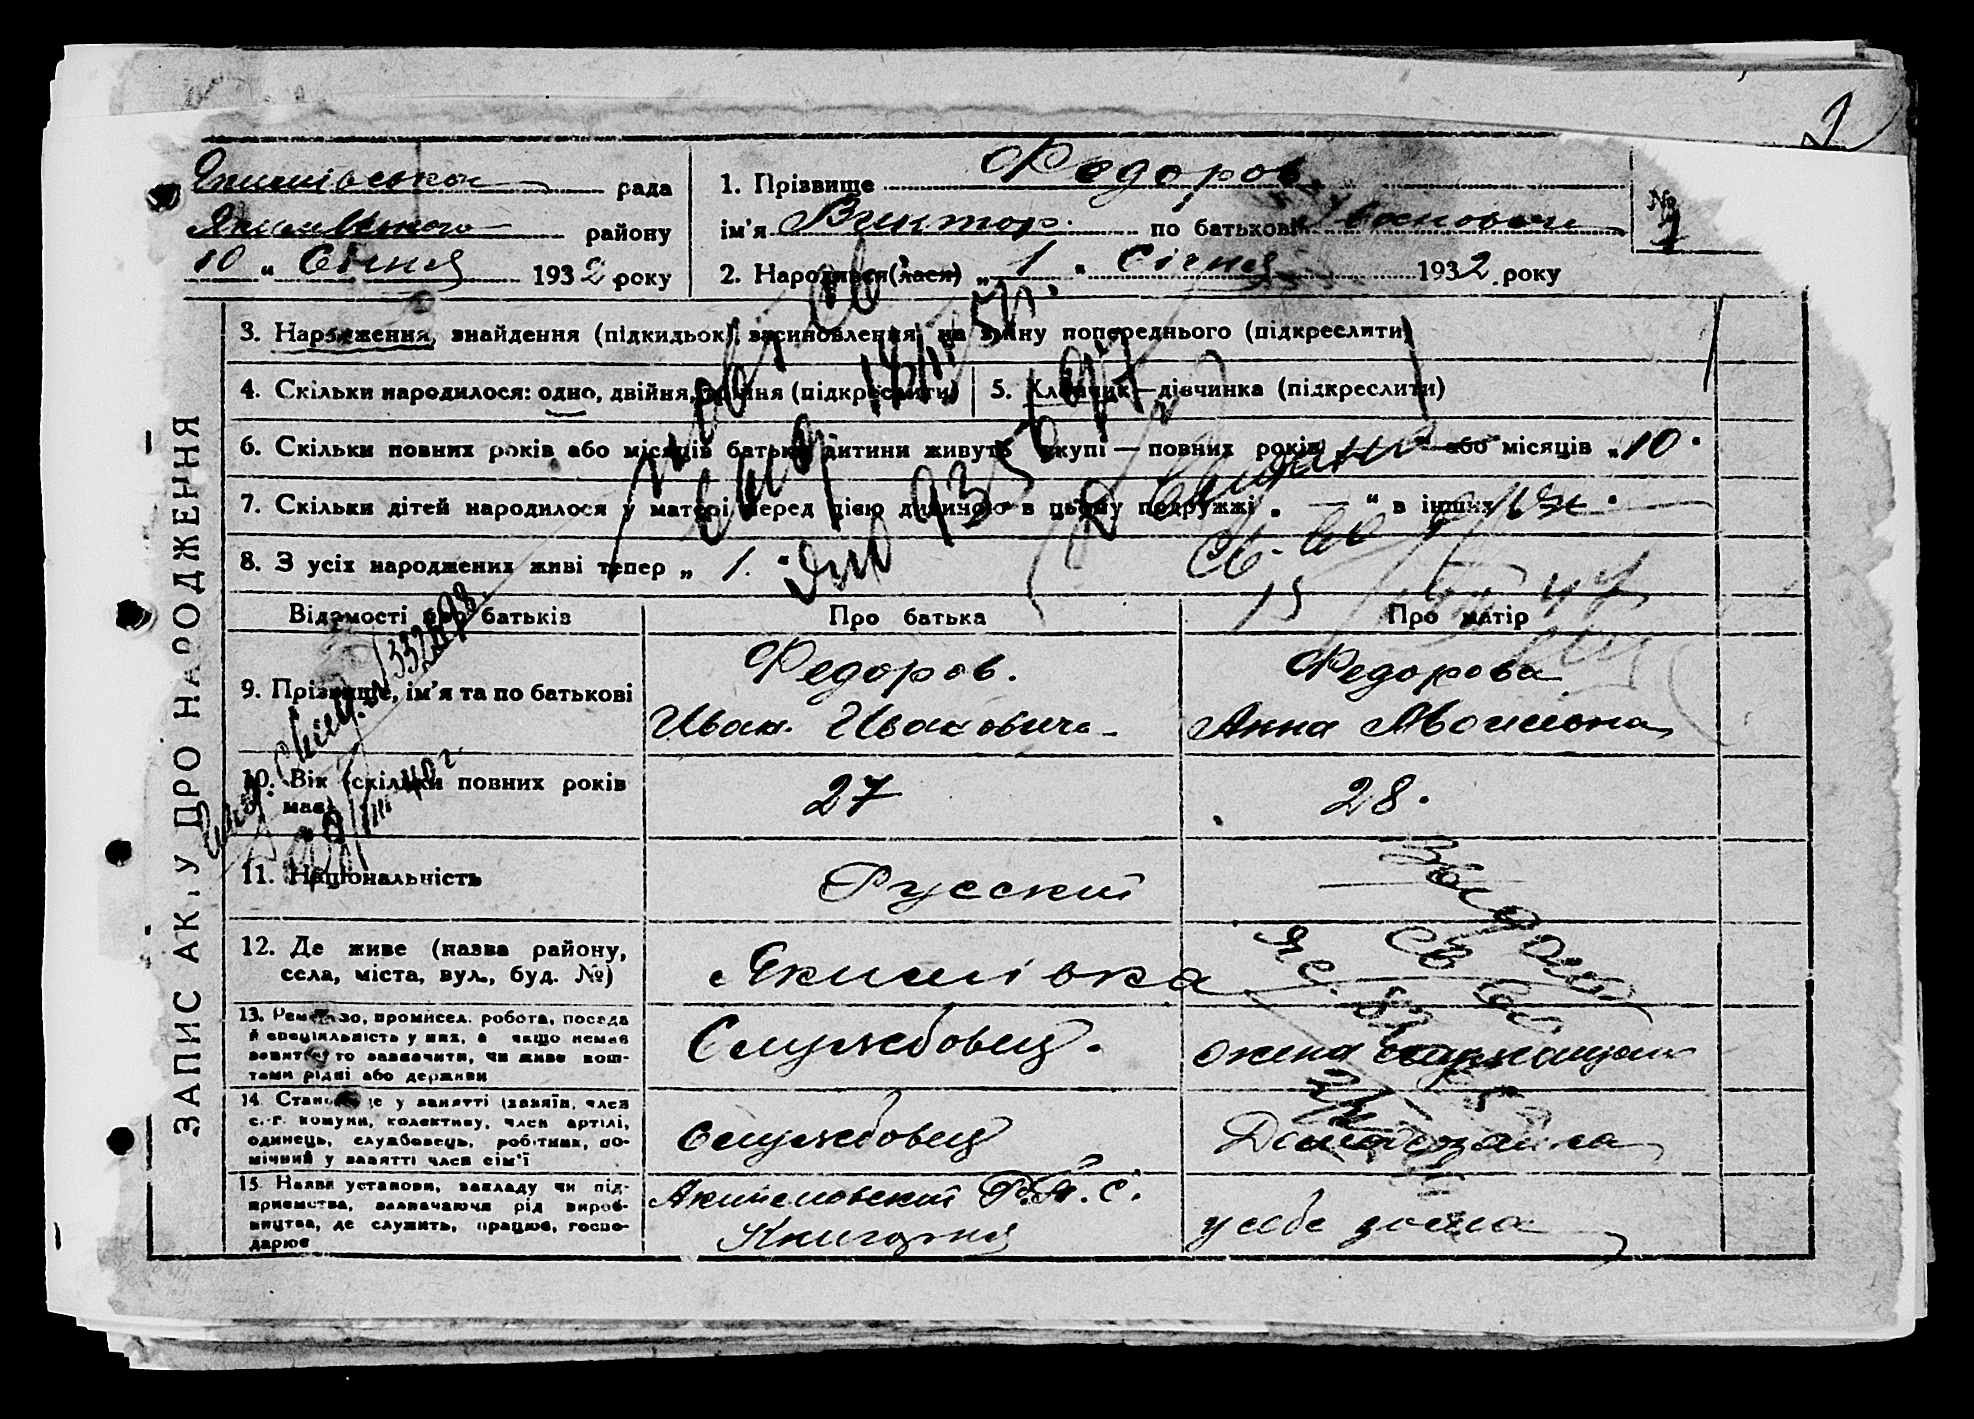 2
Якимівська рада
Якимівського району
10 „ Січня 1932 року
1. Прізвище Федоров
ім'я Виктор по батькові Іванович
2. Народився(лася) „ 1 " Січня 1932 року
№ 1
ЗАПИС АКТУ ПРО НАРОДЖЕННЯ
3. Народження, знайдення (підкидьок), засиновлення, на зміну попереднього (підкреслити)
4. Скільки народилося: одно, двійня, трійня (підкреслити)
5. Хлопчик—дівчинка (підкреслити)
6. Скільки повних років або місяців батьки дитини живуть вкупі — повних років — або місяців „10"
7. Скільки дітей народилося у матері перед цією дитиною в цьому подружжі „ — " в інших
8. З усіх народжених живі тепер „ 1. "
Відомості про батьків
Про батька
Про матір
9. Прізвище, ім'я та по батькові
Федоров.
Иван Иванович
Федорова
Анна
10. Вік (скільки повних років має)
27
28.
11. Національність
Русский
12. Де живе (назва району, села, міста, вул., буд. №)
Якимівка
13. Ремество, промисел, робота, посада й спеціяльність у них, а якщо немає заняття, то зазначити, чи живе коштами рідні або держави
Службовец.
жена
14. Становище у занятті (хазяїн, член с.-г. комуни, колективу, член артілі, одинець, службовець, робітник, помічний у занятті член сім'ї
Службовец
Домохозяйка
15. Назва установи, закладу чи підприємства, зазначаючи рід виробництва, де служить, працює, господарює
Акимовский Р.П.С.
Книгарня
у себе дома